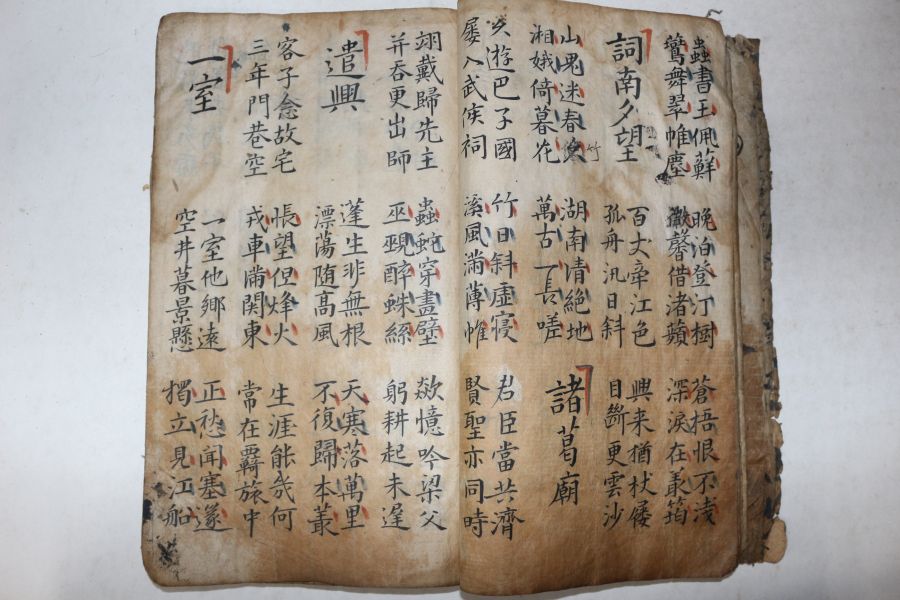 蟲書玉佩蘚
鶯舞翠帷塵
晚泊登汀樹
微馨借渚蘋
蒼梧恨不淺
深淚在叢筠
詞南夕望
百丈牽江色
孤舟汎日斜
興来猶杖屨
目斷更雲沙
山鬼迷春竹
湘娥倚暮花
湖南清絕地
萬古一長嗟
諸葛廟
久遊巴子國
屢入武侯祠
竹日斜虛寢
溪風滿薄帷
君臣當共濟
賢聖亦同時
翊戴歸先主
并吞更出師
蟲蛇穿畫壁
巫覡醉蛛絲
欻憶吟梁父
躬耕起未遅
遣興
蓬生非無根
漂蕩随高風
天寒落萬里
不復歸本叢
客子念故宅
三年門巷空
悵望但烽火
戎車滿関東
生涯能幾何
常在羇旅中
一室
一室他鄉遠
空井暮景懸
正愁聞塞邃
獨立見江船